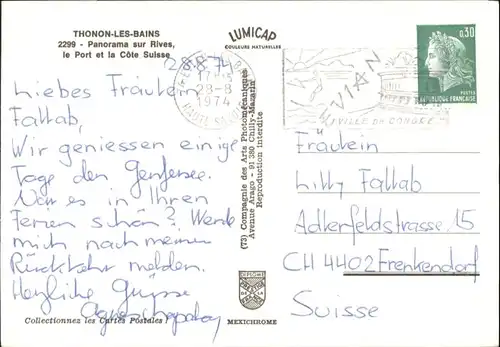 THONON-LES-BAINS
2299 - Panorama sur Rives,
le Port et la Côte Suisse
LUMICAP
COULEURS NATURELLES
28.8.74
17H15
28-8
1974
EVIAN
VILLE DU CONGE
0,30
POSTES
REPUBLIQUE FRANÇAISE
Liebes Fräulein
Fallab,
Wir geniessen einige
Tage den Genfersee.
War es in Ihren
Ferien schön? Werde
mich nach meiner
Rückkehr melden.
Herzliche Grüsse
(73) Compagnie des Arts Photomécaniques
Avenue Arago - 91 380 Chilly-Mazarin
Reproduction interdite
Fräulein
Lilly Fallab
Adlerfeldstrasse 15
CH 4402 Frenkendorf
Suisse
DIPLOME
DE LA
Collectionnez les Cartes Postales !
MEXICHROME